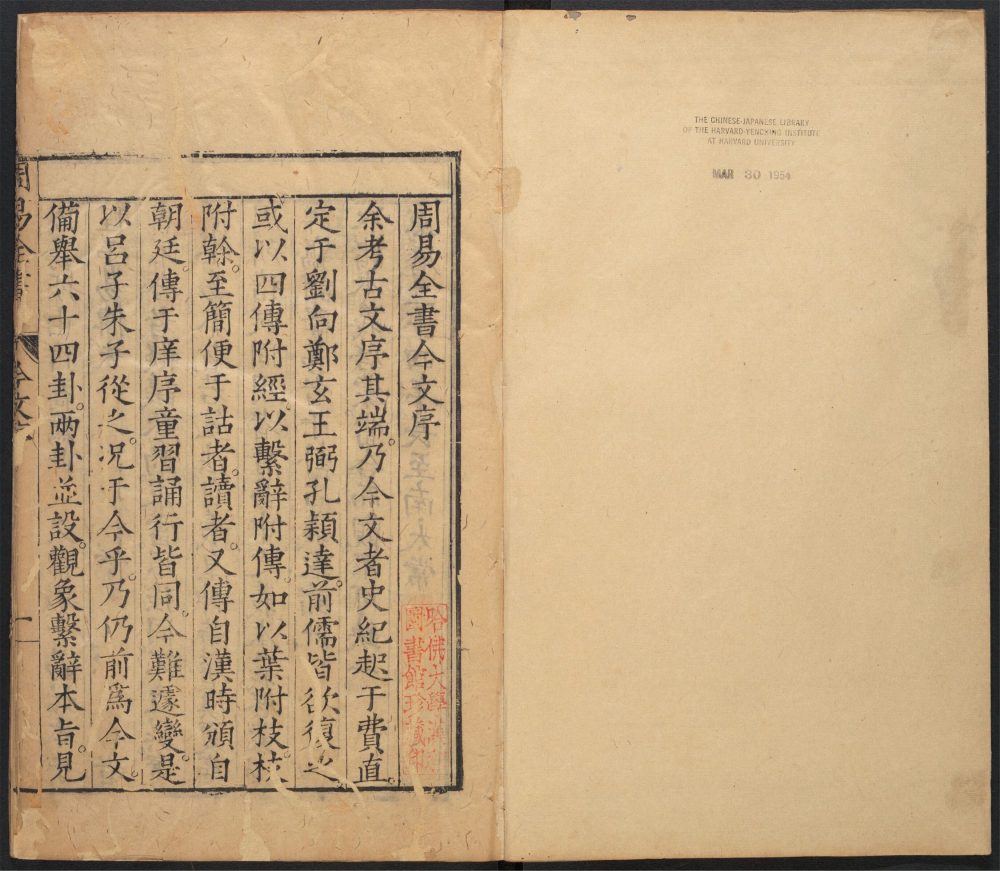 周易全書今文序
余考古文序其端。乃今文者史紀起于費直。
定于劉向鄭玄王弼孔穎達。前儒皆欲復之
或以四傳附經以繫辭附傳如以葉附枝。枝
附榦。至簡便于詁者。讀者。又傳自漢時頒自
朝廷。傳于庠序童習誦行皆同。今難遽變。是
以呂子朱子從之。况于今乎。乃仍前爲今文。
備舉六十四卦。兩卦並設。觀象繫辭本旨。見
周易全書
今文序
一
哈佛大學漢和
圖書館珍藏印
THE CHINESE-JAPANESE LIBRARY
OF THE HARVARD-YENCHING INSTITUTE
AT HARVARD UNIVERSITY
MAR 30 1954